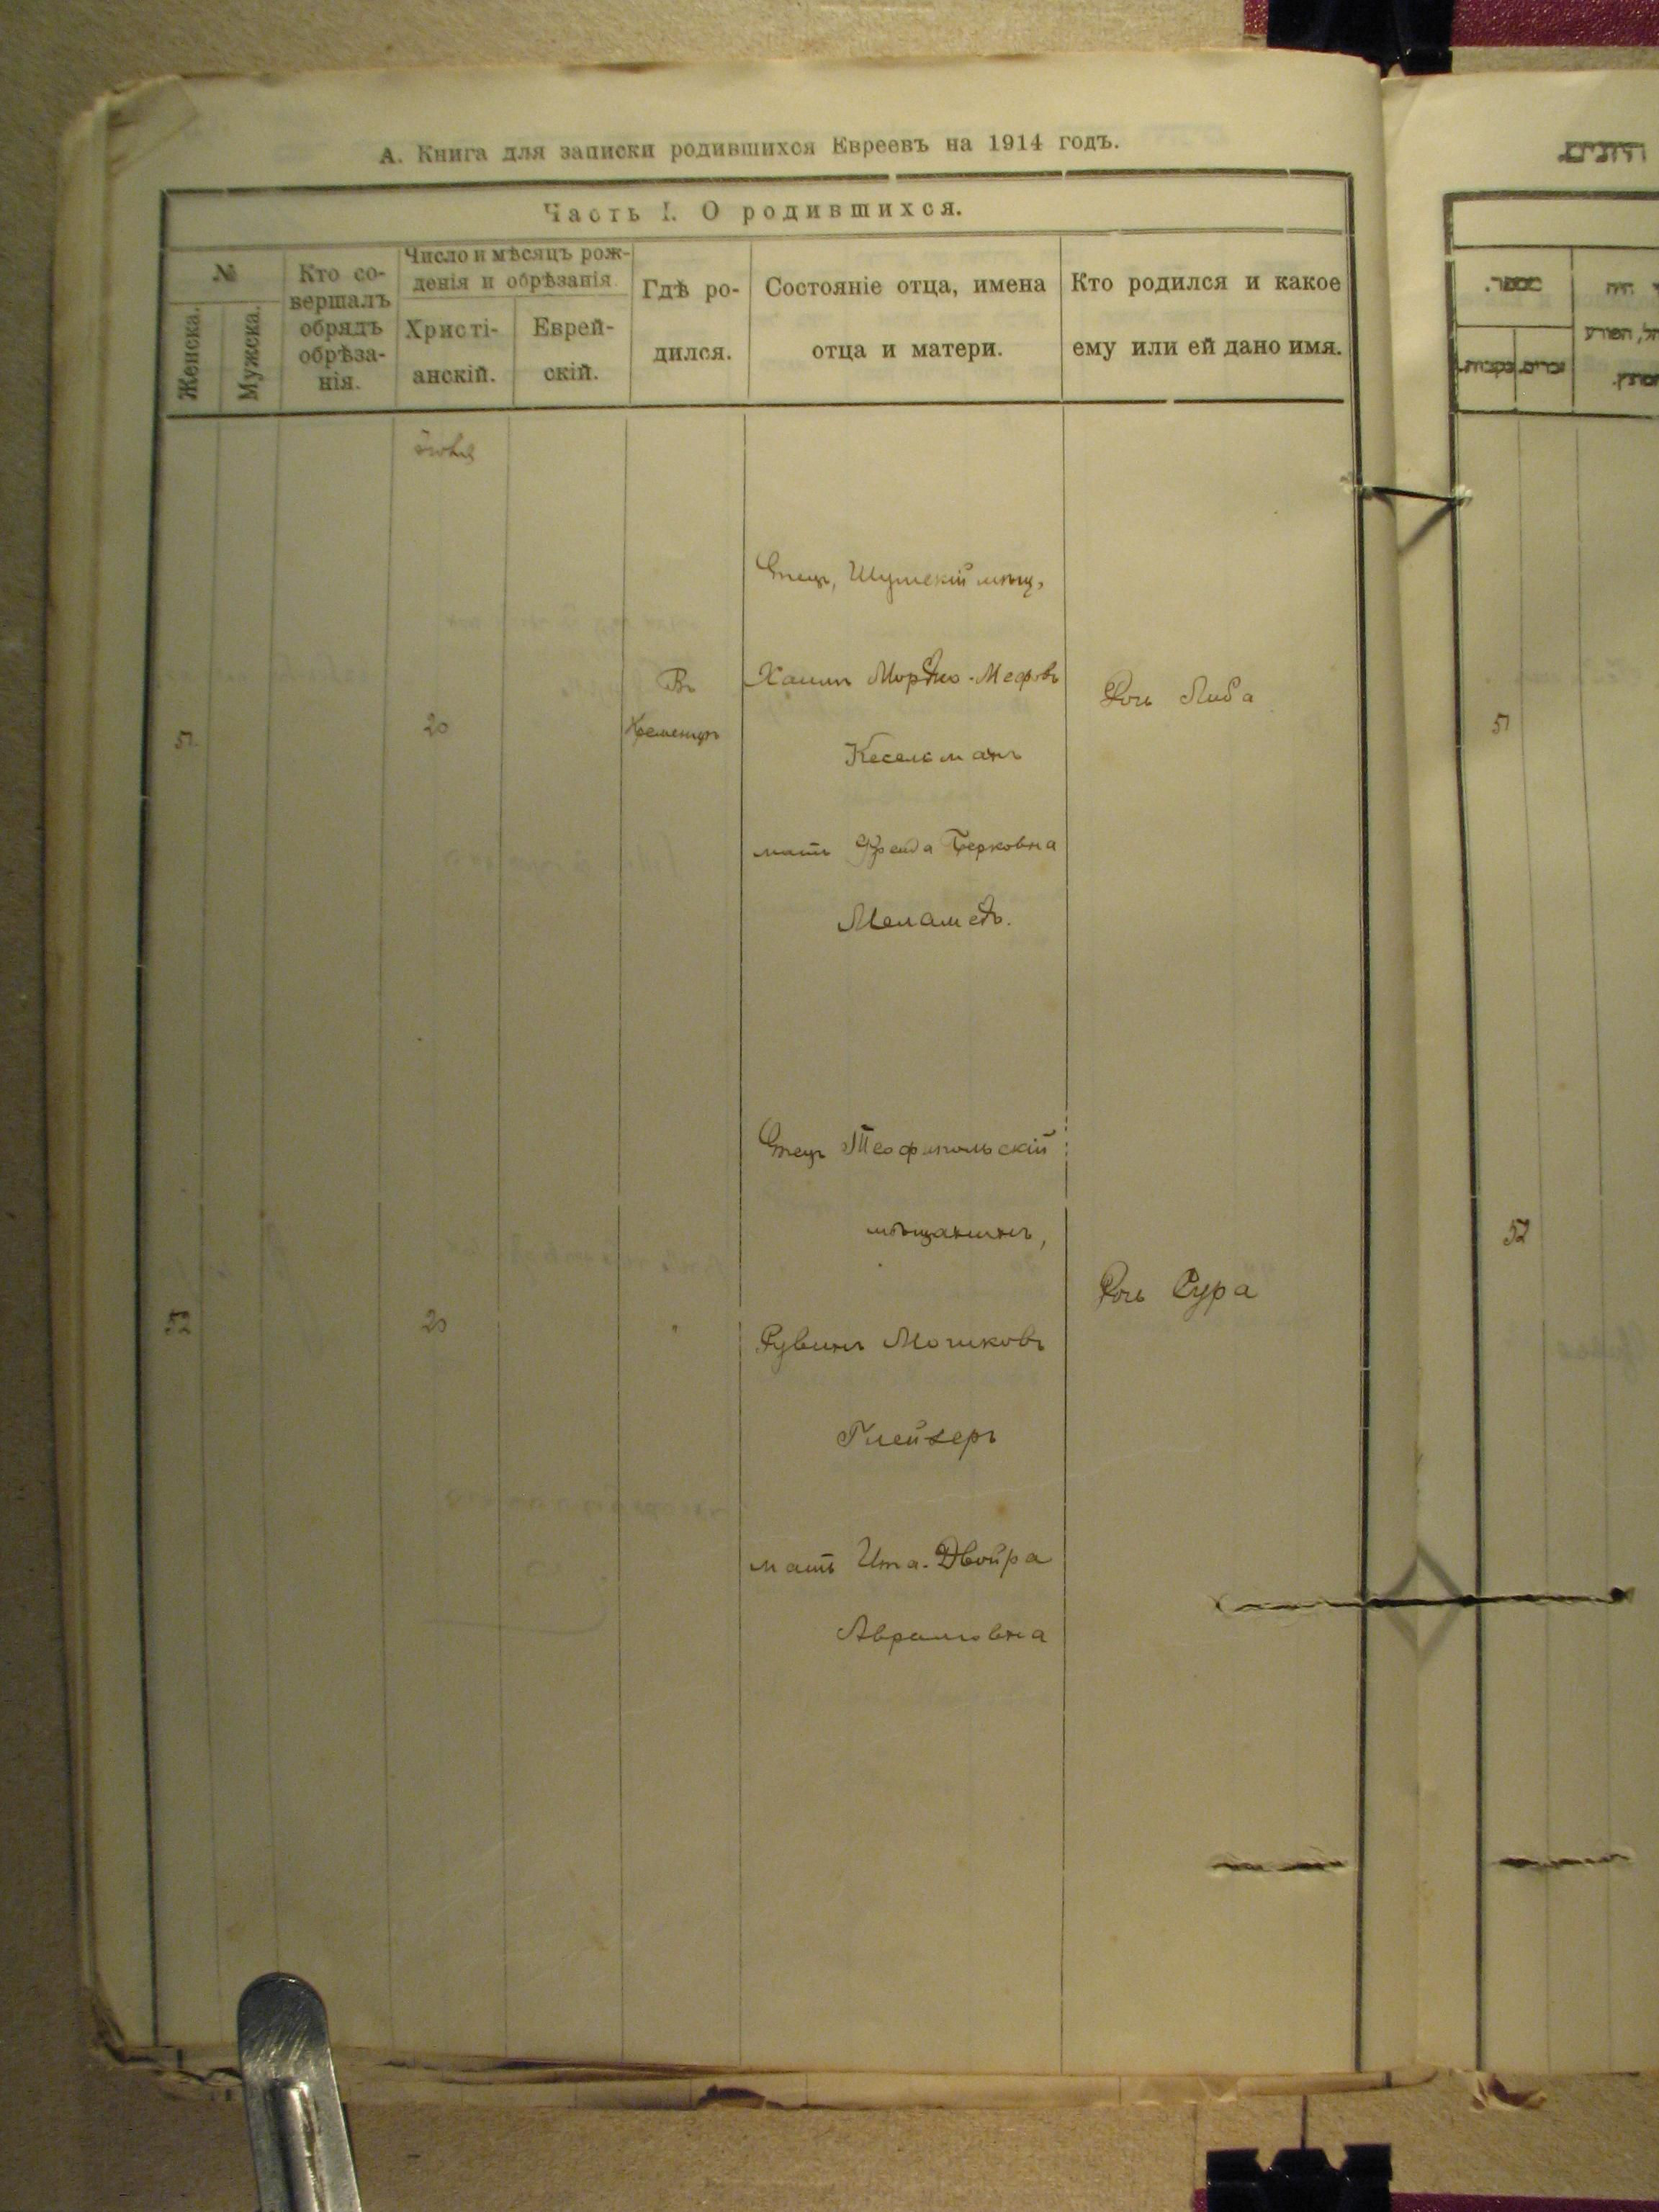 А. Книга для записки родившихся Евреевъ на 1914 годъ.
Часть I. О родившихся.
№
Женска.
Мужска.
Кто со-
вершалъ
обрядъ
обрѣза-
нія.
Число и мѣсяцъ рож-
денія и обрѣзанія.
Христі-
анскій.
Еврей-
скій.
Гдѣ ро-
дился.
Состояніе отца, имена
отца и матери.
Кто родился и какое
ему или ей дано имя.
51
20
Въ
Кременцѣ
Отецъ, Шумскій мѣщ,
Хаимъ Мордко-
Кесельманъ
мать Фрейда Берковна
Меламедъ.
Дочь Либа
52
20
"
Отецъ Теофипольскій
мѣщанинъ,
Рувинъ Мошковъ
Глейзеръ
мать Ита-Двойра
Аврамовна
Дочь Сура
מספר.
זכרים.
נקבות.
51
52